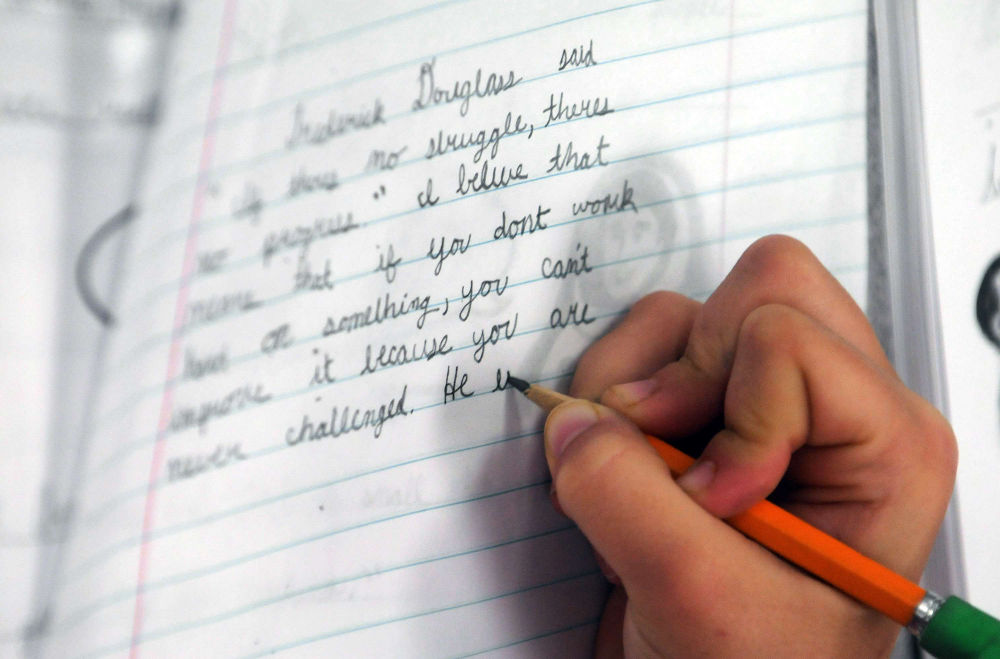 Frederick Douglass said
"if theres no struggle, theres
no progress." I belive that
means that if you dont work
hard on something, you can't
improve it because you are
never challenged. He